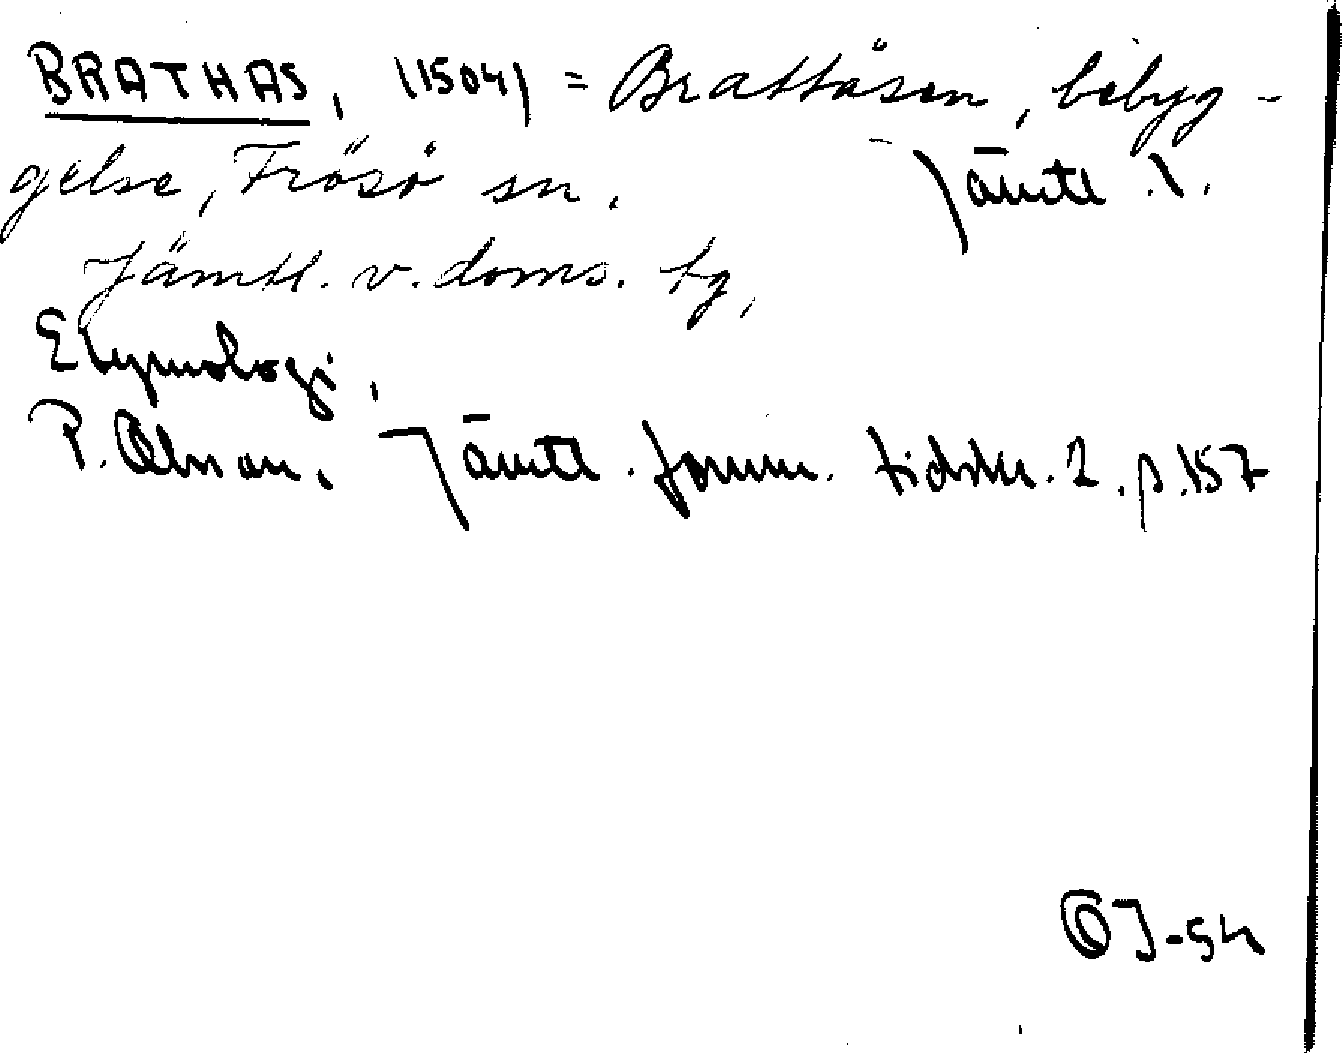 BRATHAS, (1504) = Brattåsen, bebyg-
gelse, Frösö sn.
Jämtl. l.
Jämtl. v. doms. tg,
Etymologi,
P. Olsson, Jämtl. fornm. tidskr. 2. p. 157
OJ-54